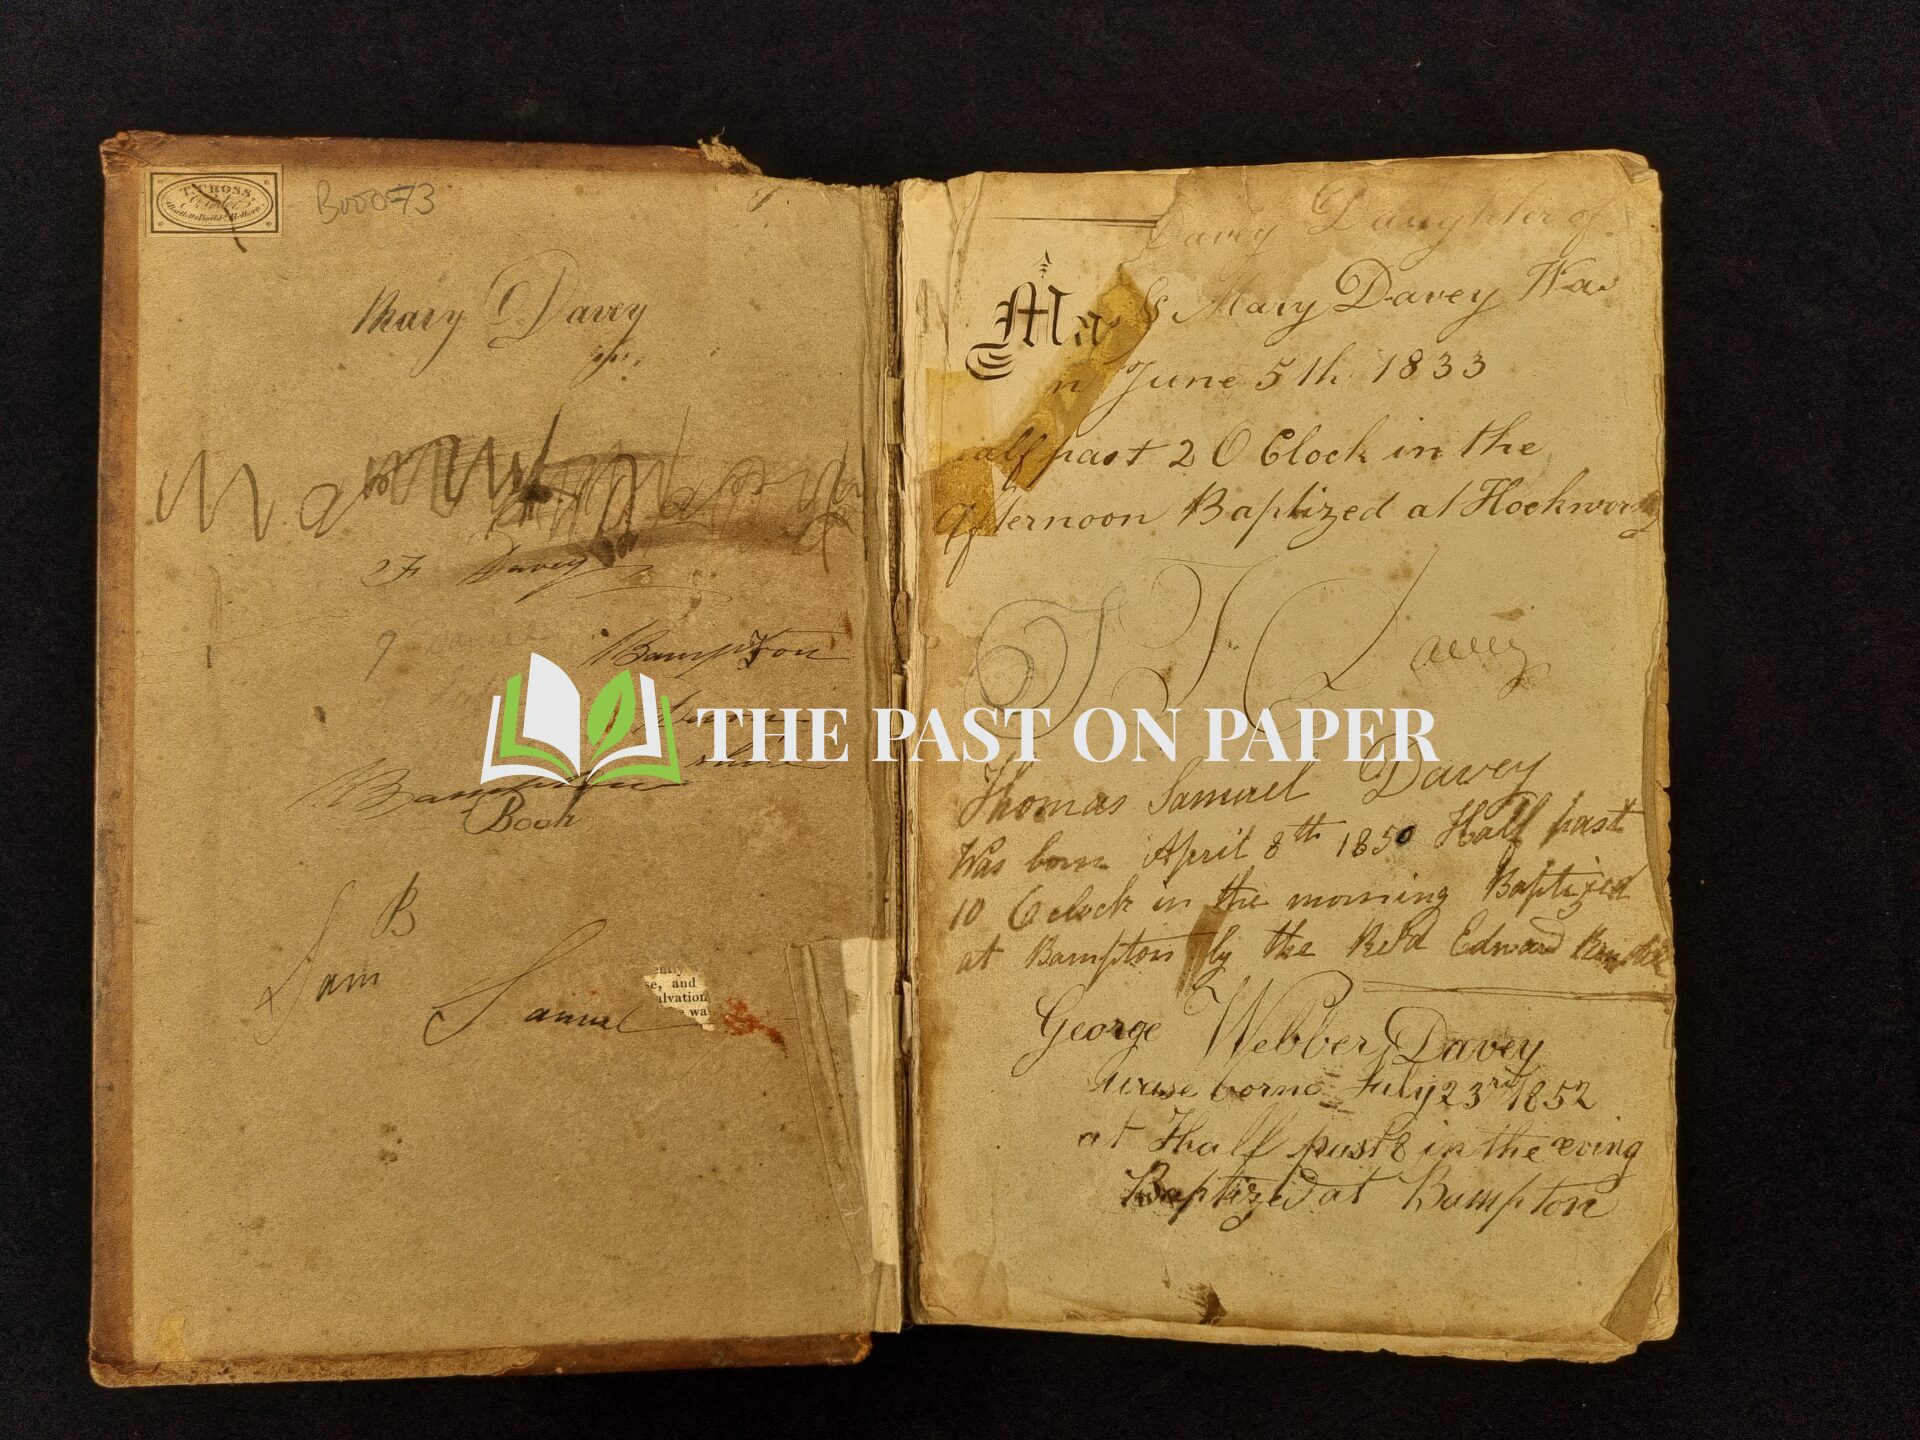 T. CROSS
B00073
Mary Davey
Davey
Bampton
Bampton
shire
Book
B
Sam
Samuel
ently
se, and
alvation
wa
THE PAST ON PAPER
Davey Daughter of
& Mary Davey Was
n June 5th 1833
alf past 2 O Clock in the
afternoon Baptized at Hockwor
Davey
Thomas Samuel Davey
Was born April 8th 1850 Half past
10 O clock in the morning Baptized
at Bampton by the Revd Edward
George Webber Davey
wase borne July 23rd 1852
at Half past 8 in the eving
Baptized at Bampton